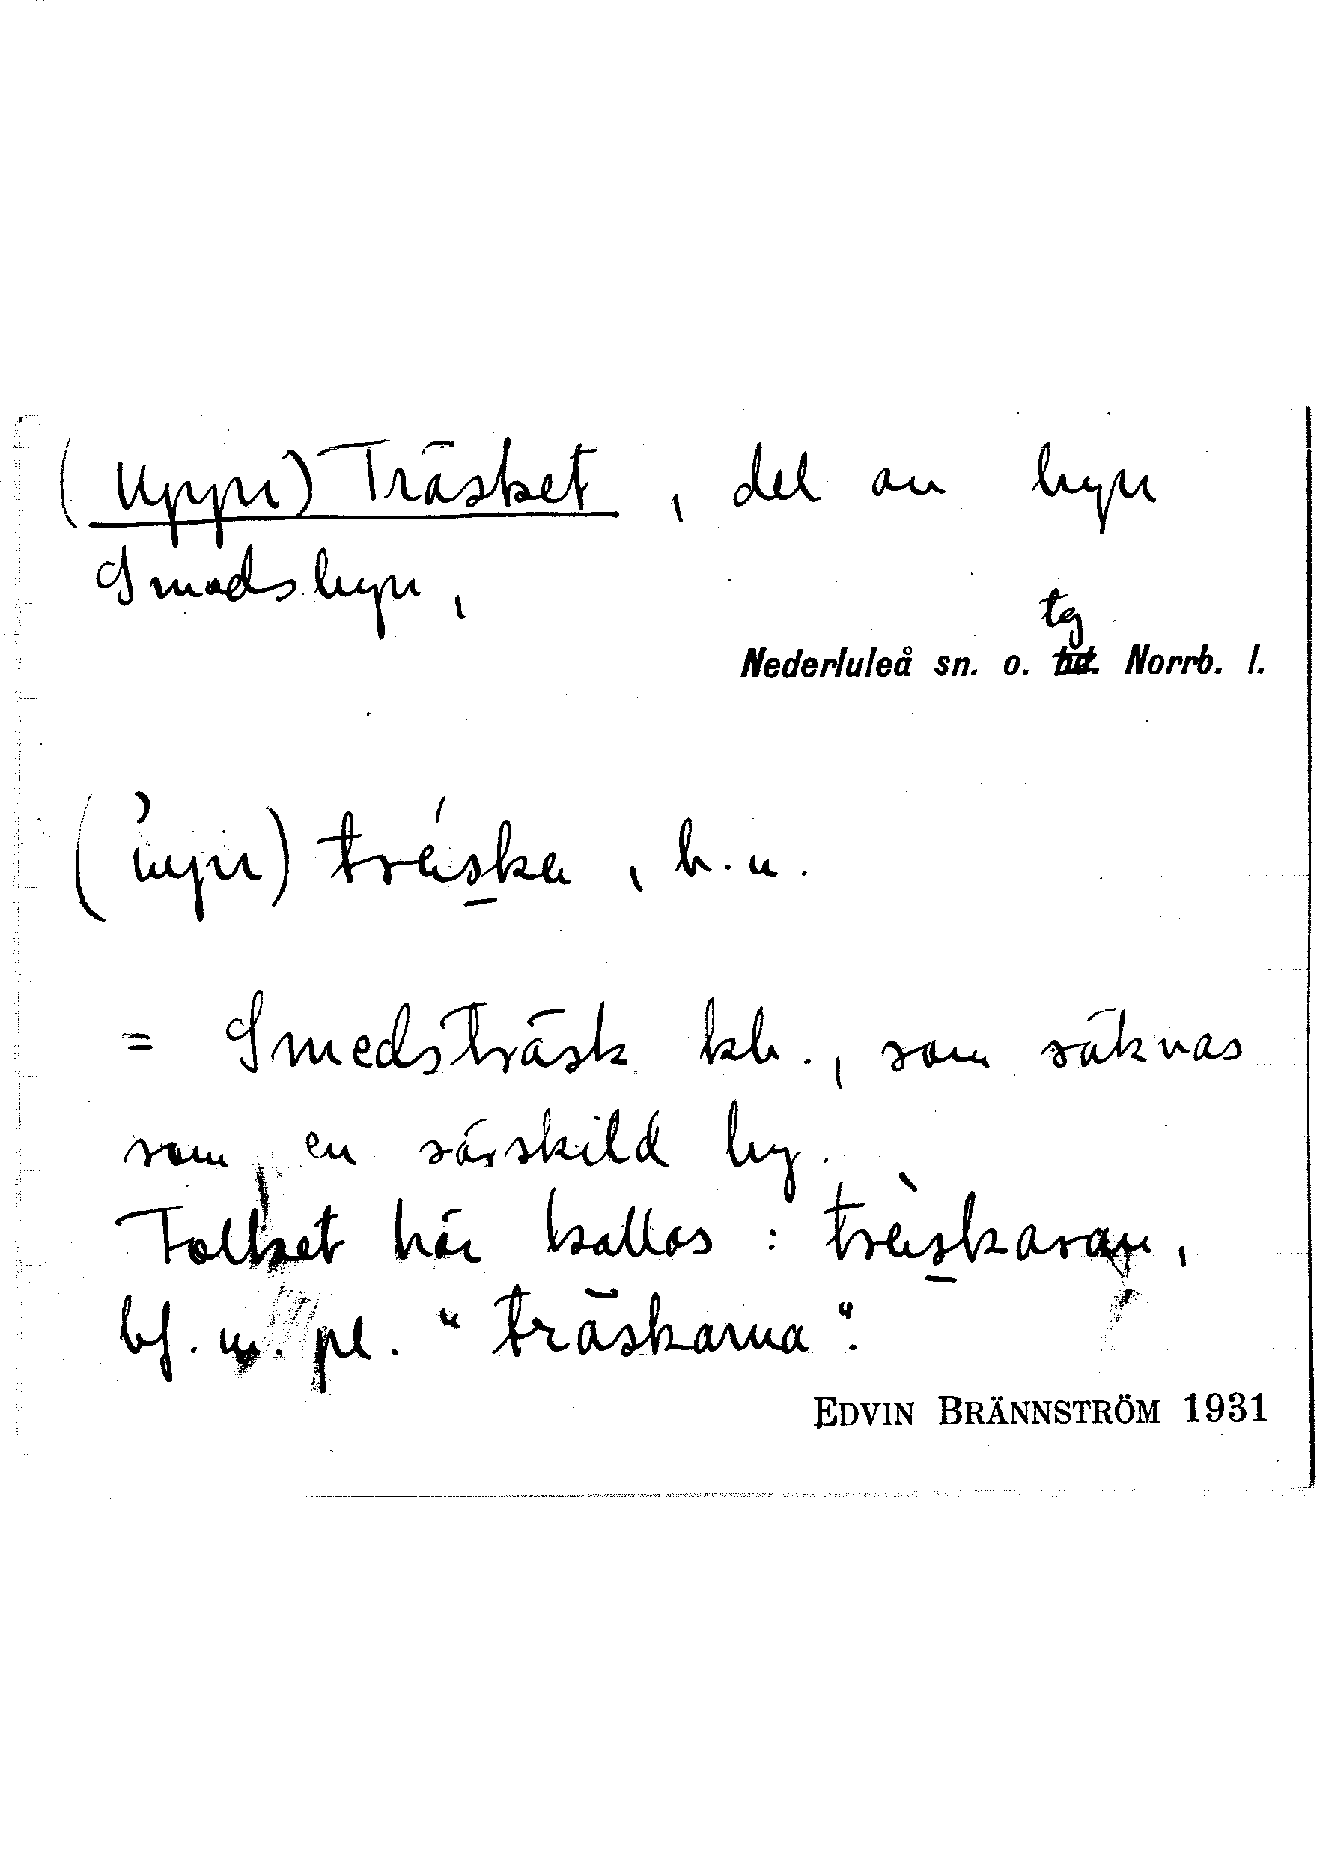 (Uppe) Träsket, del av byn
Smedsbyn,
tg
Nederluleå sn. o. Norrb. l.
träska, b. n.
= Smedsträsk kb., som räknas
som en särskild by.
Folket här kallas : träskaran,
bf. m. pl. "träskarna".
EDVIN BRÄNNSTRÖM 1931